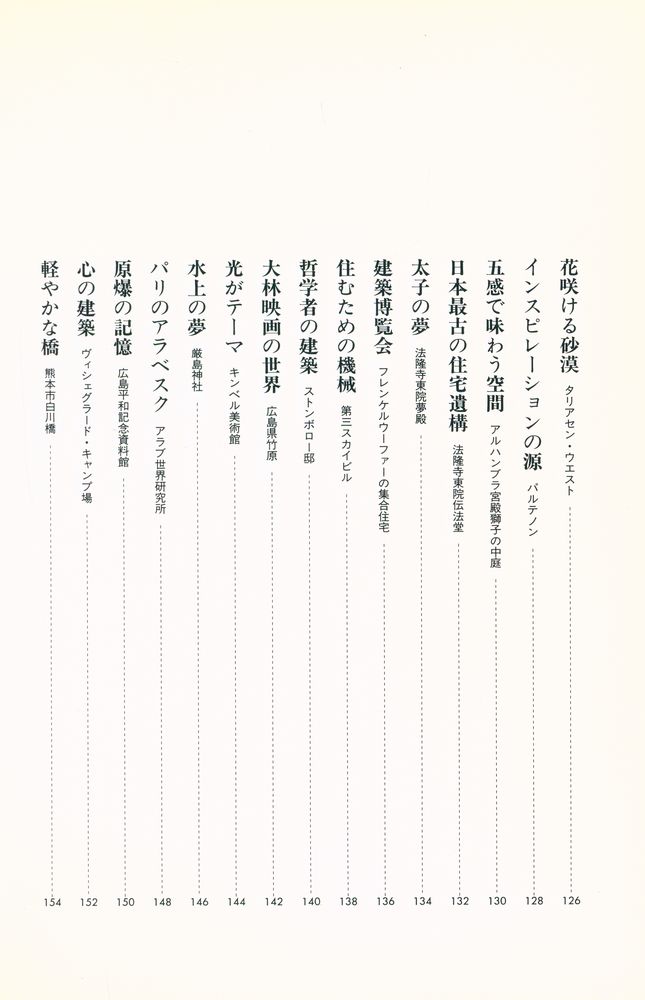 花咲ける砂漠 タリアセン・ウエスト 126
インスピレーションの源 パルテノン 128
五感で味わう空間 アルハンブラ宮殿獅子の中庭 130
日本最古の住宅遺構 法隆寺東院伝法堂 132
太子の夢 法隆寺東院夢殿 134
建築博覧会 フレンケルウーファーの集合住宅 136
住むための機械 第三スカイビル 138
哲学者の建築 ストンボロー邸 140
大林映画の世界 広島県竹原 142
光がテーマ キンベル美術館 144
水上の夢 厳島神社 146
パリのアラベスク アラブ世界研究所 148
原爆の記憶 広島平和記念資料館 150
心の建築 ヴィシェグラード・キャンプ場 152
軽やかな橋 熊本市白川橋 154